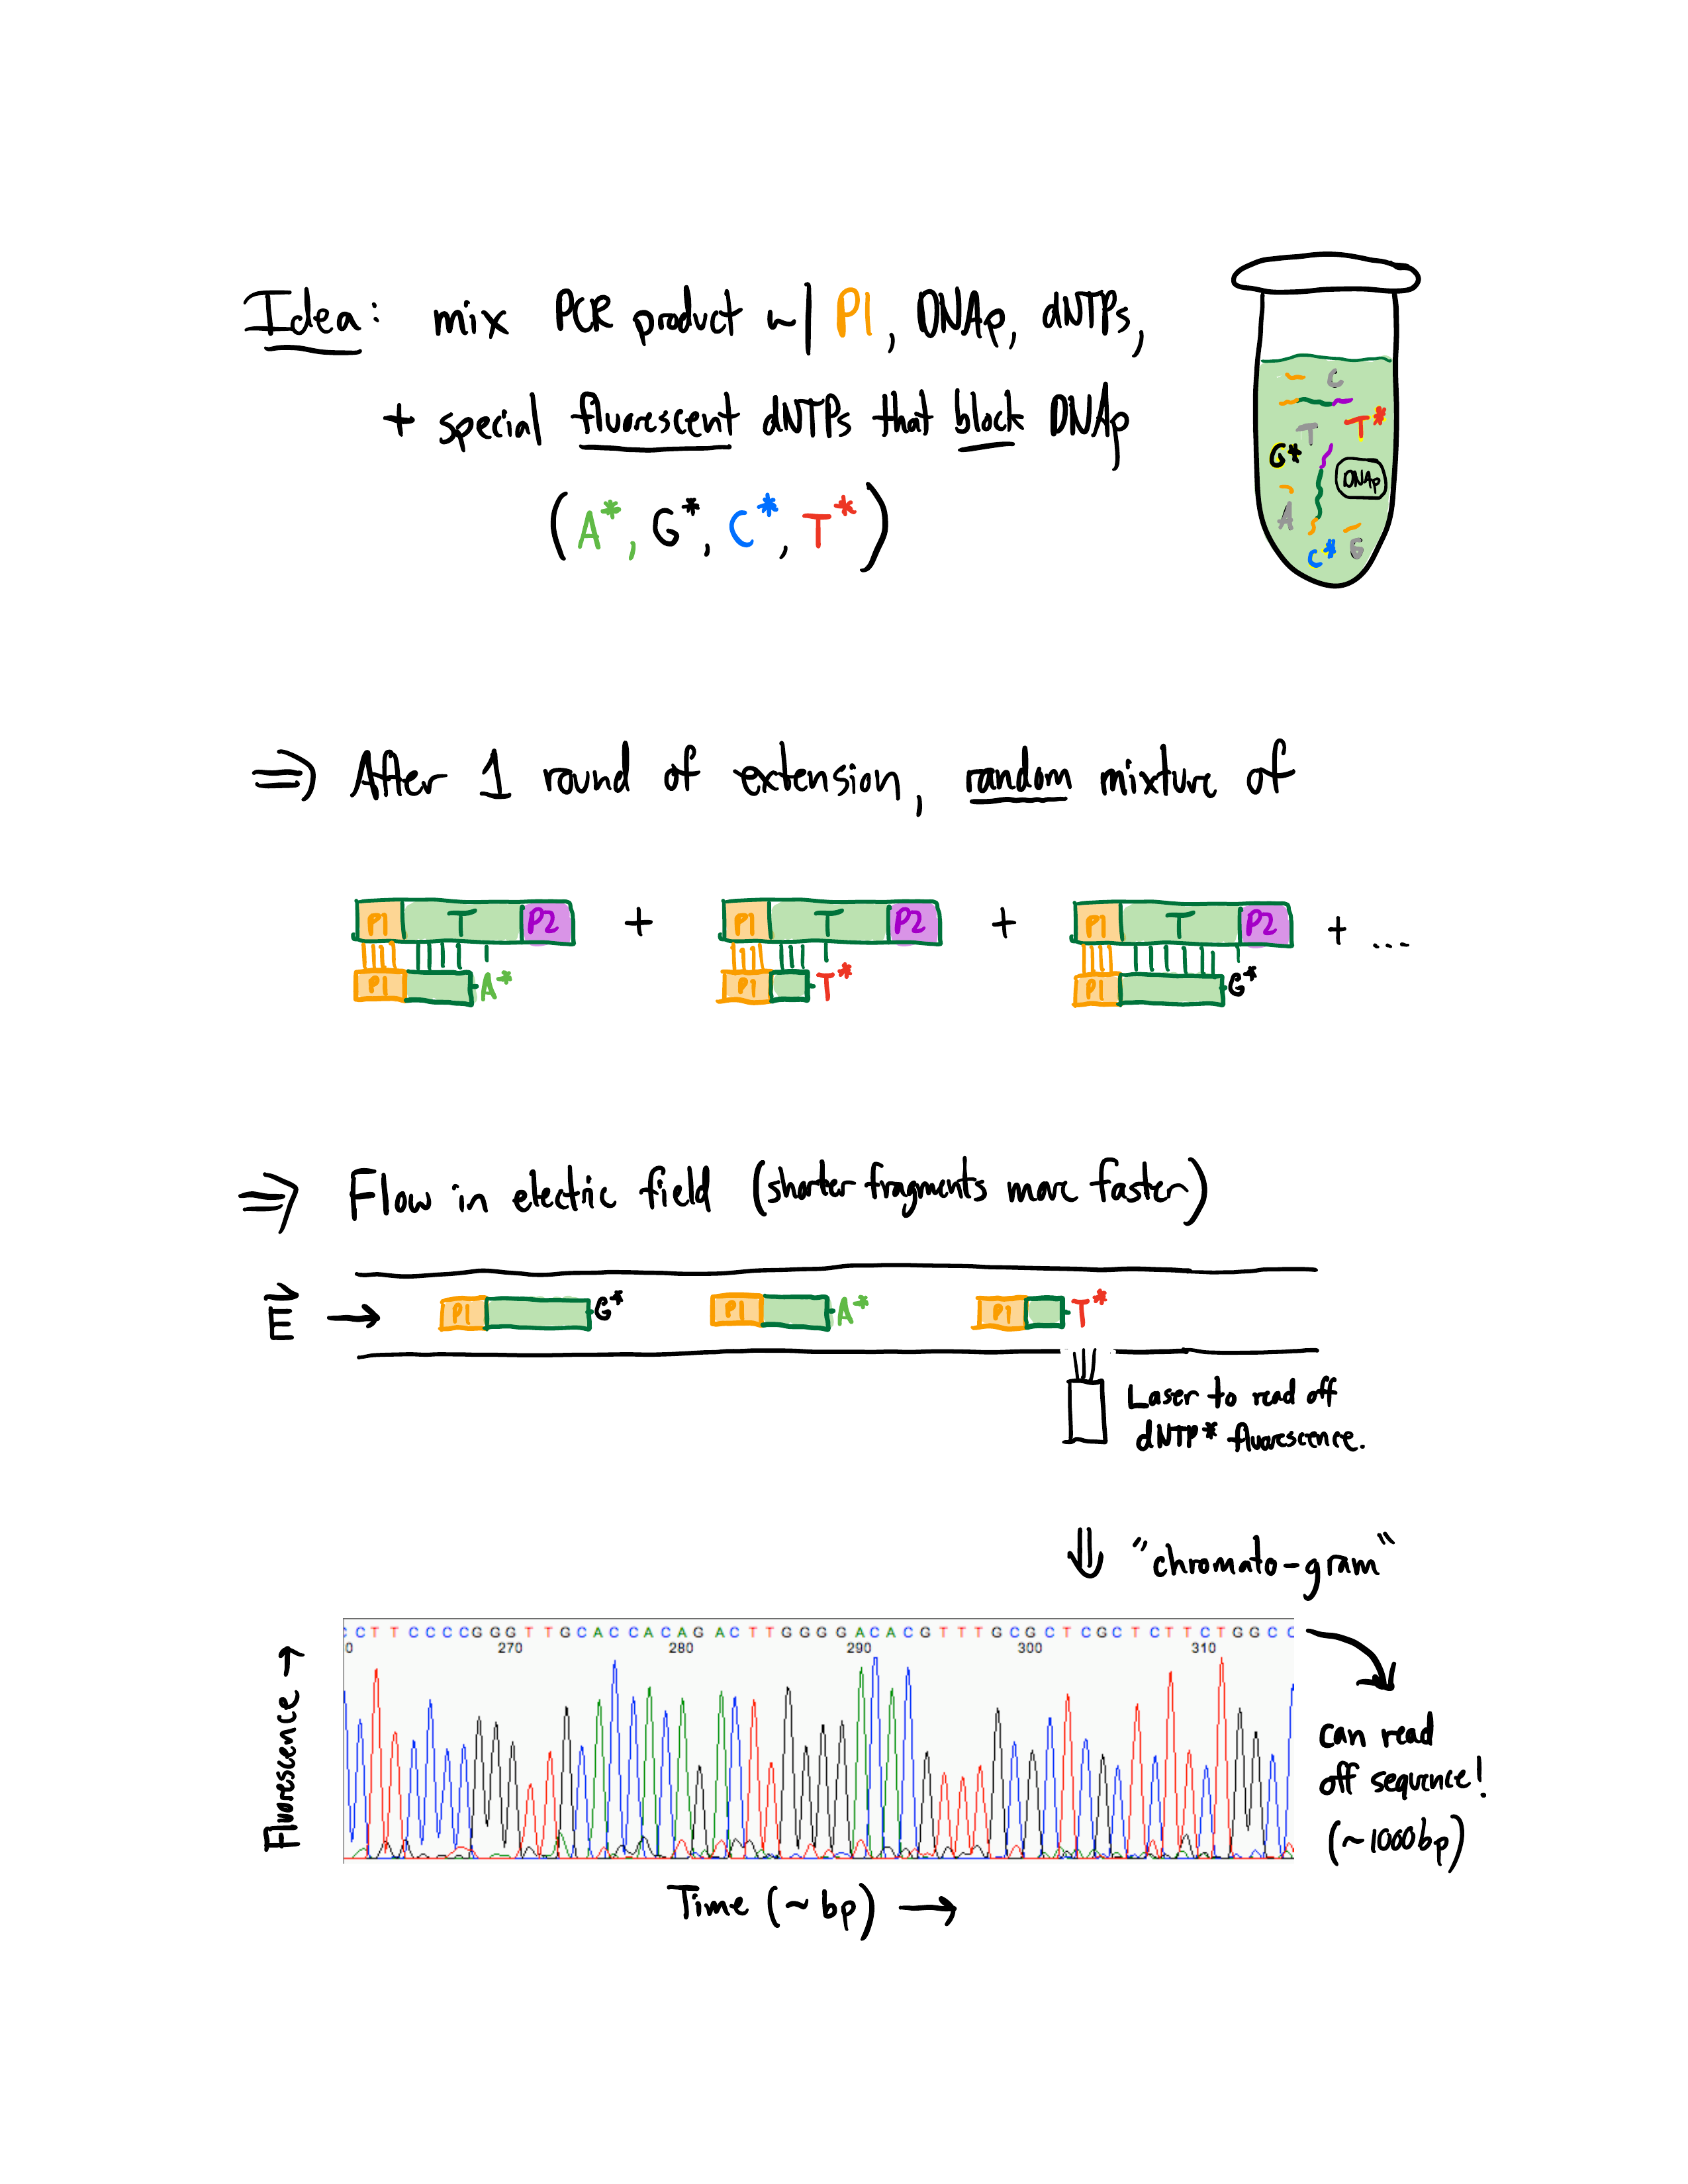 Idea: mix PCR product w/ P1, DNAp, dNTPs,
+ special fluorescent dNTPs that block DNAp
(A*, G*, C*, T*)
C
T T*
G*
DNAp
A
C* G
⇒ After 1 round of extension, random mixture of
P1 T P2 + P1 T P2 + P1 T P2 + ...
P1 A* P1 T* P1 G*
⇒ Flow in electric field (shorter fragments move faster)
E → P1 G* P1 A* P1 T*
Laser to read off
dNTP* fluorescence.
⇓ "chromato-gram"
C C T T C C C C G G G T T G C A C C A C A G A C T T G G G G A C A C G T T T G C G C T C G C T C T T C T G G C C
0 270 280 290 300 310
Fluorescence →
can read
off sequence!
(~1000bp)
Time (~bp) →